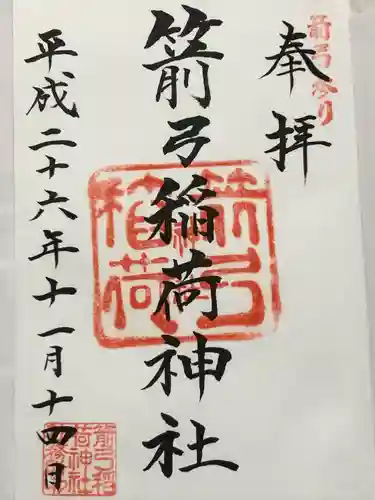 箭弓参り
奉拝
箭弓稲荷神社
箭弓稲荷
平成二十六年十一月十四日
箭弓稲荷神社